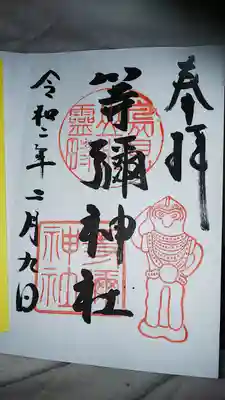 奉拝
等彌神社
令和二年二月九日
鳥見
靈畤
等彌
神社